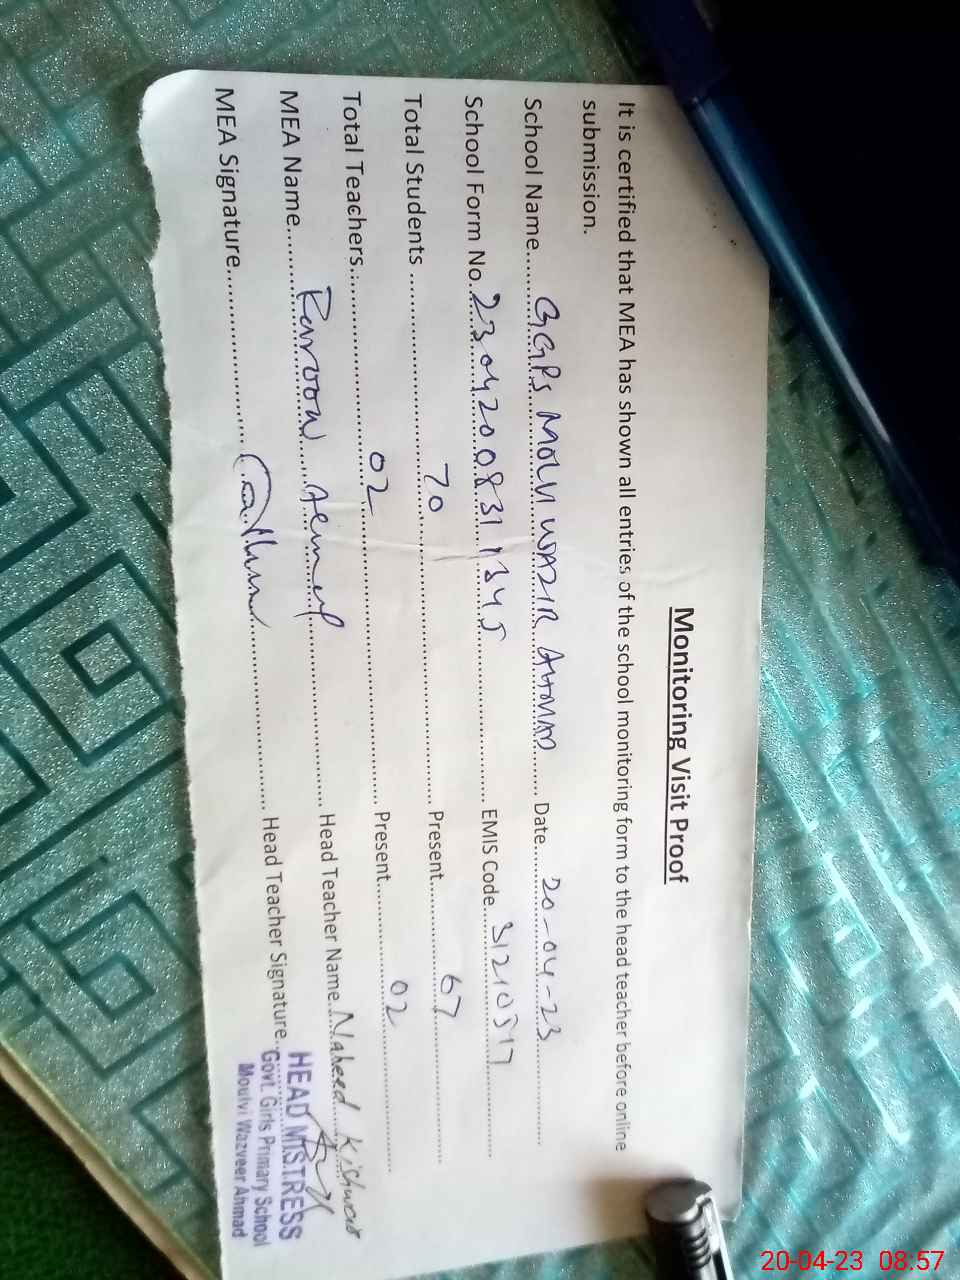 Monitoring Visit Proof
It is certified that MEA has shown all entries of the school monitoring form to the head teacher before online
submission.
School Name...... GGPS MOLVI WAZIR AHMAD ...... Date...... 20-04-23
School Form No. 23042008311345 ...... EMIS Code...... 31210517
Total Students ...... 70 ...... Present...... 67
Total Teachers...... 02 ...... Present...... 02
MEA Name...... ...... Head Teacher Name... Naheed Kishwar
MEA Signature...... ...... Head Teacher Signature...
HEAD MISTRESS
Govt. Girls Primary School
Moulvi Wazveer Ahmad
20-04-23 08.57